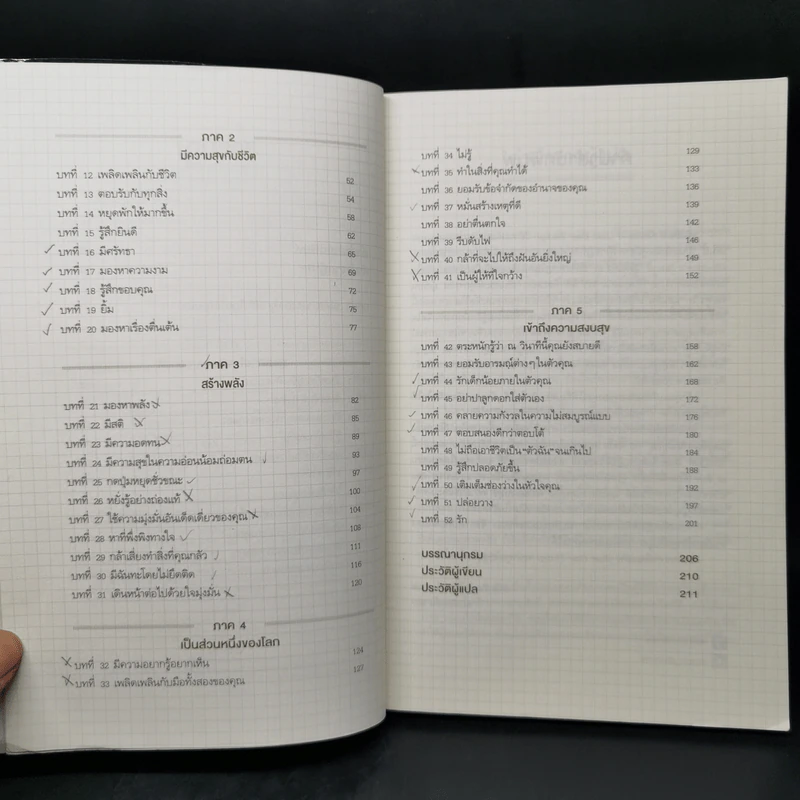 ภาค 2
มีความสุขกับชีวิต
บทที่ 12 เพลิดเพลินกับชีวิต 52
บทที่ 13 ตอบรับกับทุกสิ่ง 54
บทที่ 14 หยุดพักให้มากขึ้น 58
บทที่ 15 รู้สึกยินดี 62
บทที่ 16 มีศรัทธา 65
บทที่ 17 มองหาความงาม 69
บทที่ 18 รู้สึกขอบคุณ 72
บทที่ 19 ยิ้ม 75
บทที่ 20 มองหาเรื่องตื่นเต้น 77
ภาค 3
สร้างพลัง
บทที่ 21 มองหาพลัง 82
บทที่ 22 มีสติ 85
บทที่ 23 มีความอดทน 89
บทที่ 24 มีความสุขในความอ่อนน้อมถ่อมตน 93
บทที่ 25 กดปุ่มหยุดชั่วขณะ 97
บทที่ 26 หยั่งรู้อย่างถ่องแท้ 100
บทที่ 27 ใช้ความมุ่งมั่นอันเด็ดเดี่ยวของคุณ 104
บทที่ 28 หาที่พึ่งพิงทางใจ 108
บทที่ 29 กล้าเสี่ยงทำสิ่งที่คุณกลัว 111
บทที่ 30 มีฉันทะโดยไม่ยึดติด 116
บทที่ 31 เดินหน้าต่อไปด้วยใจมุ่งมั่น 120
ภาค 4
เป็นส่วนหนึ่งของโลก
บทที่ 32 มีความอยากรู้อยากเห็น 124
บทที่ 33 เพลิดเพลินกับมือทั้งสองของคุณ 127
บทที่ 34 ไม่รู้ 129
บทที่ 35 ทำในสิ่งที่คุณทำได้ 133
บทที่ 36 ยอมรับข้อจำกัดของอำนาจของคุณ 136
บทที่ 37 หมั่นสร้างเหตุที่ดี 139
บทที่ 38 อย่าตื่นตกใจ 142
บทที่ 39 รีบดับไฟ 146
บทที่ 40 กล้าที่จะไปให้ถึงฝันอันยิ่งใหญ่ 149
บทที่ 41 เป็นผู้ให้ที่ใจกว้าง 152
ภาค 5
เข้าถึงความสงบสุข
บทที่ 42 ตระหนักรู้ว่า ณ วินาทีนี้คุณยังสบายดี 158
บทที่ 43 ยอมรับอารมณ์ต่างๆในตัวคุณ 163
บทที่ 44 รักเด็กน้อยภายในตัวคุณ 168
บทที่ 45 อย่าปาลูกดอกใส่ตัวเอง 172
บทที่ 46 คลายความกังวลในความไม่สมบูรณ์แบบ 176
บทที่ 47 ตอบสนองดีกว่าตอบโต้ 180
บทที่ 48 ไม่ถือเอาชีวิตเป็น "ตัวฉัน" จนเกินไป 184
บทที่ 49 รู้สึกปลอดภัยขึ้น 188
บทที่ 50 เติมเต็มช่องว่างในหัวใจคุณ 192
บทที่ 51 ปล่อยวาง 197
บทที่ 52 รัก 201
บรรณานุกรม 206
ประวัติผู้เขียน 210
ประวัติผู้แปล 211